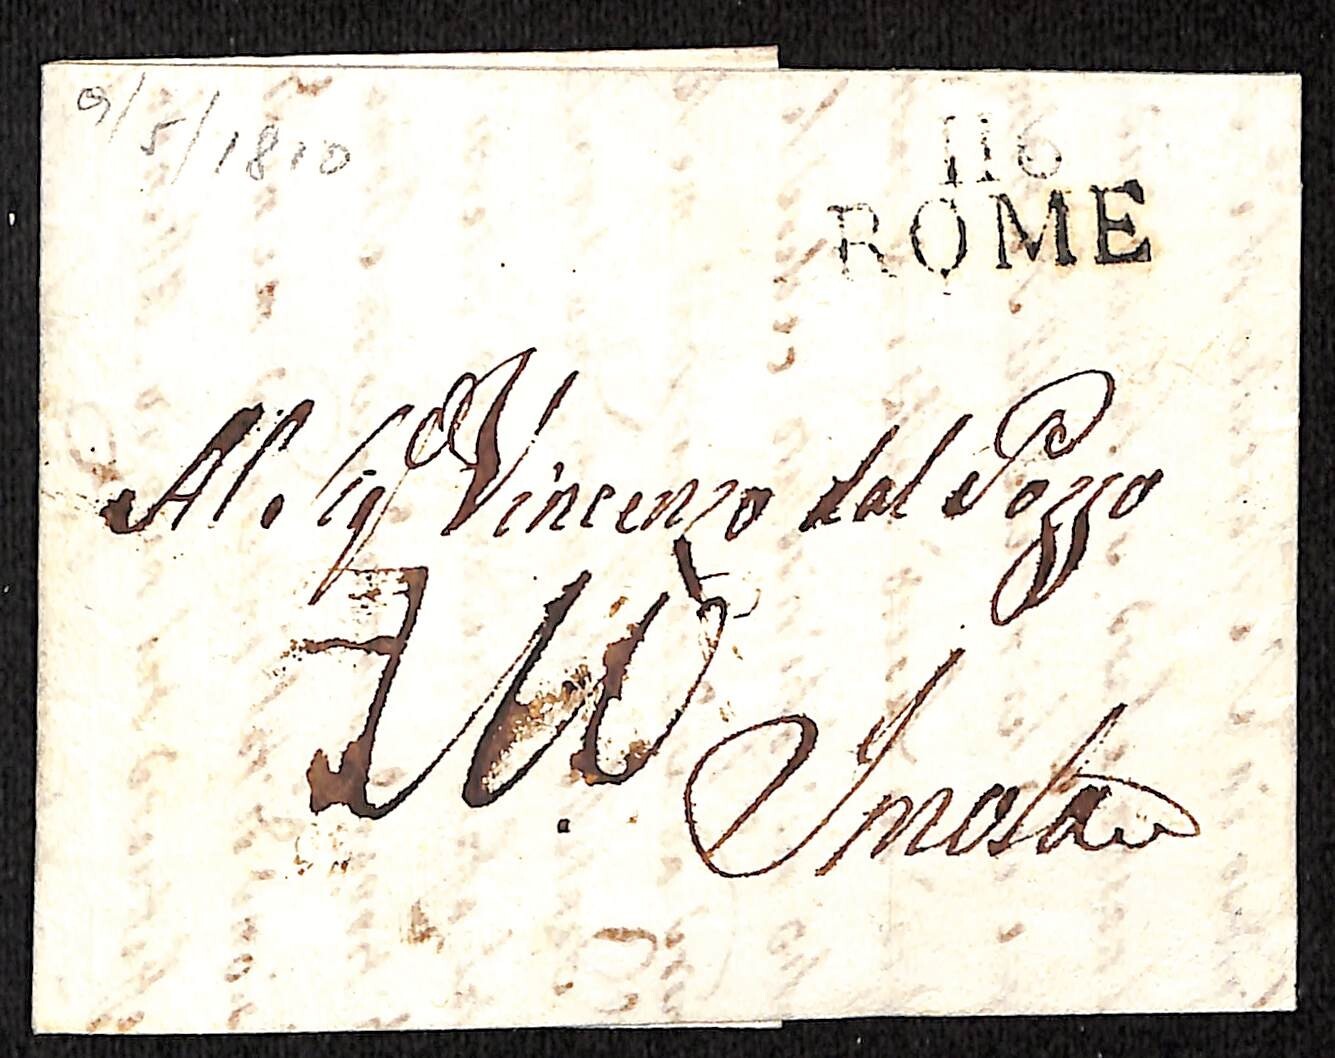 9/5/1810
116
ROME
Al Sig Vincenzo dal Pozzo
Imola